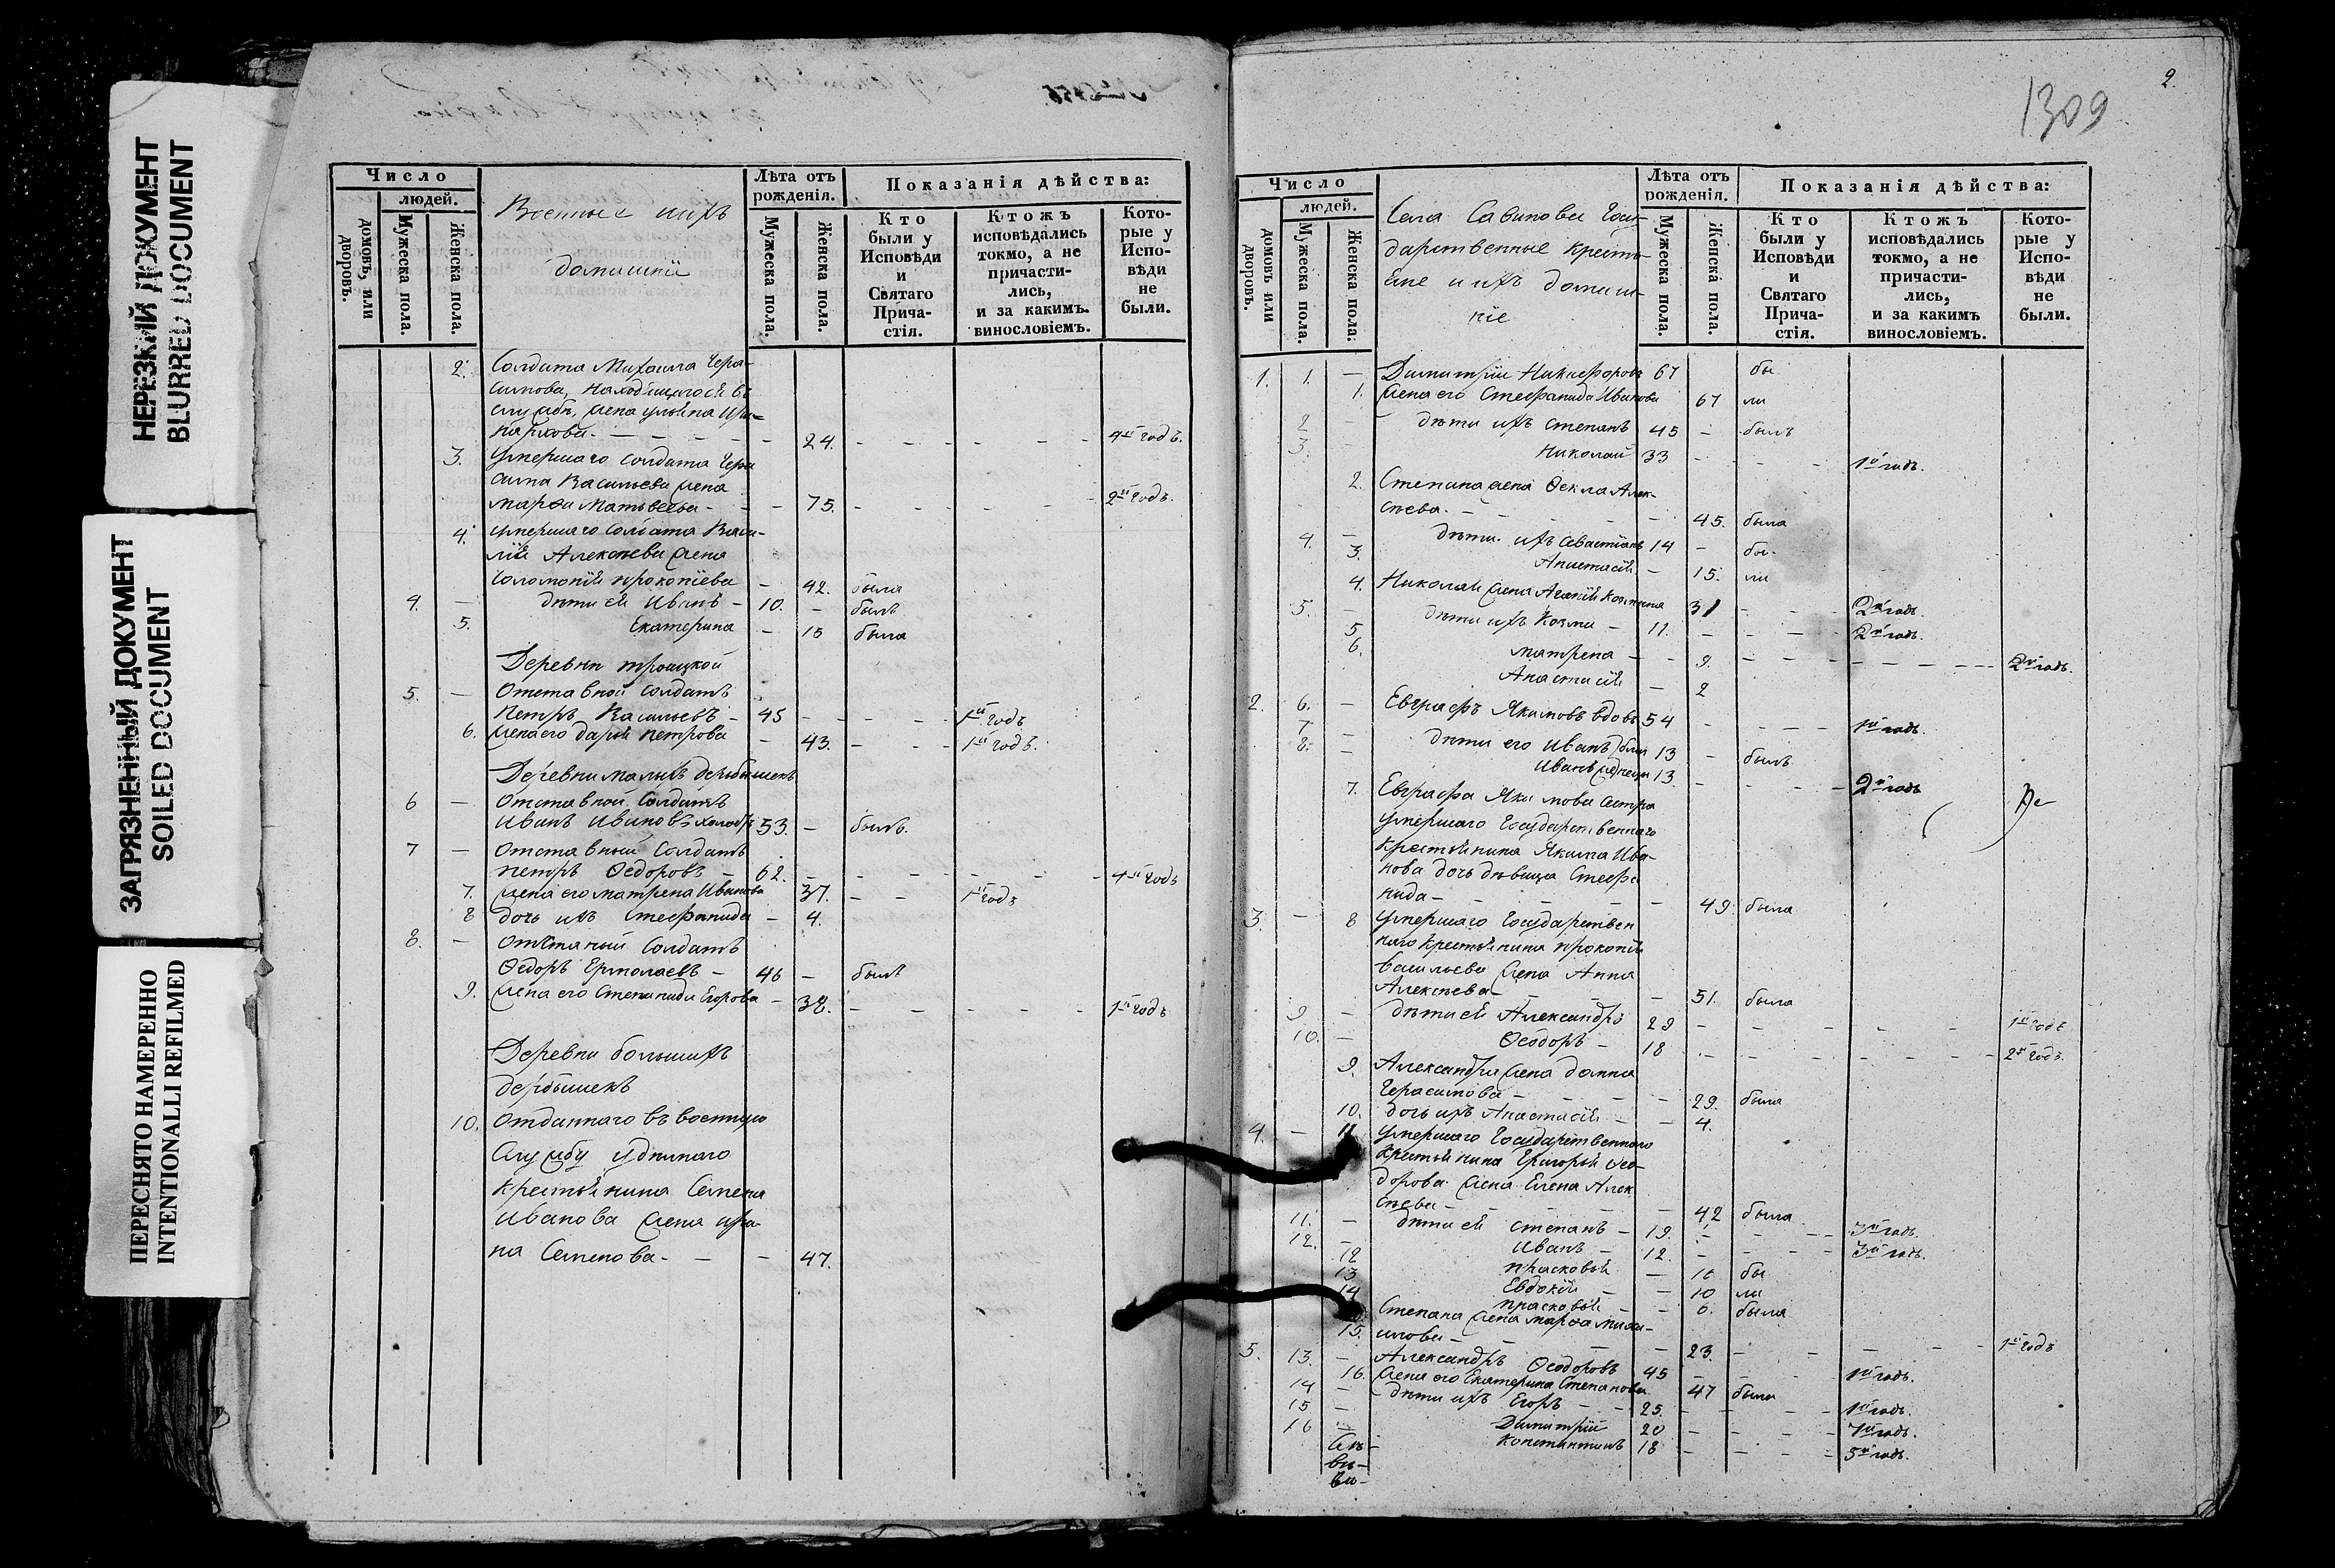 НЕРЕЗКИЙ ДОКУМЕНТ
BLURRED DOCUMENT
ЗАГРЯЗНЕННЫЙ ДОКУМЕНТ
SOILED DOCUMENT
ПЕРЕСНЯТО НАМЕРЕННО
INTENTIONALLI REFILMED
Число
людей.
домовъ, или дворовъ.
Мужеска пола.
Женска пола.
Военные ихъ
домашніи
Лѣта отъ рожденія.
Мужеска пола.
Женска пола.
Показанія дѣйства:
Кто были у Исповѣди и Святаго Прича-стія.
Ктожъ исповѣдались токмо, а не причасти-лись, и за какимъ. винословіемъ.
Кото-рые у Испо-вѣди не были.
2. Солдата Михаила Гера-
симова, находящагося въ
службѣ, жена Ульяна Ири-
нархова - 24. 4й годъ.
3. Умершаго солдата Гера
сима Васильева жена
Марѳа Матвеева - 75. 2й годъ.
4. Умершаго солдата Васи-
лія Алексѣева жена
Соломонія Прокопіева - 42. была
4. — дѣти ей Иванъ - 10. - былъ
5. Екатерина - 15 была
Деревни Троицкой
5. — Отставной солдатъ
Петръ Васильевъ - 45 - 1й годъ
6. Жена его Дарья Петрова - 43. - 1й годъ.
Деревни Малыхъ Дербышекъ
6 — Отставной солдатъ
Иванъ Ивановъ 53. - былъ.
7 — Отставный солдатъ
Петръ Ѳедоровъ - 62. 4й годъ
7. Жена его Матрена Иванова 37. - 1й годъ
8 дочь ихъ Стефанида - 4.
8. — Отставный солдатъ
Ѳедоръ Ермолаевъ - 46 - былъ
9. Жена его Степанида Егорова - 38. 1й годъ
Деревни Большихъ
Дербышекъ
10. Отданнаго въ военную
службу удѣльнаго
крестьянина Семена
Иванова жена Ири-
на Семенова - 47.
2.
1309
Число
людей.
домовъ или дворовъ.
Мужеска пола.
Женска пола:
Села Савинова Госу-
дарственные кресть-
яне и ихъ домаш-
ніе
Лѣта отъ рожденія.
Мужеска пола.
Женска пола.
Показанія дѣйства:
Кто были у Исповѣди и Святаго Прича-стія.
Ктожъ исповѣдались токмо, а не причасти-лись, и за какимъ винословіемъ.
Кото-рые у Испо-вѣди не были.
1. 1. — Димитрій Никифоровъ 67 бы
1. Жена его Стефанида Иванова 67 ли
2 - дѣти ихъ Степанъ 45 - былъ
3. - Николай 33 - 1й годъ.
2. Степана жена Ѳекла Алек-
сѣева. - 45. была
4. — дѣти ихъ Севастіанъ 14 - бы-
3. Анастасія - 15. ли
4. Николая жена Агафія Козмина 31 - 2й годъ.
5. — дѣти ихъ Козма - 11. - 2й годъ.
5 Матрена - 9. - 2й годъ.
6. Анастасія - 2
2. 6. — Евграфъ Якимовъ вдовъ 54 - 1й годъ.
7 - дѣти его Иванъ 13 - былъ
8. - Иванъ 13. - 2й годъ
7. Евграфа Якимова сестра
умершаго Государственнаго
крестьянина Якима Ива-
нова дочь дѣвица Стефа
нида - 49 была
3. - 8 Умершаго Государствен
наго крестьянина Прокопія
Васильева жена Анна
Алексѣева - 51. была
9 - дѣти ей Александръ 29 - 1й годъ
10. - Ѳеодоръ - 18 - 2й годъ.
9. Александра жена Домна
Герасимова - 29. была
10. дочь ихъ Анастасія - 4.
4. - 11 Умершаго Государственнаго
крестьянина Григорья Ѳео-
дорова жена Елена Алек
сѣева - 42 была
11. - дѣти ей Степанъ - 19. - 3й годъ.
12. - Иванъ - 12. - 3й годъ.
12 Прасковья - 16 бы
13 Евдокія - 10 ли
14 Прасковья - 6. была
15. Степана жена Марѳа Миха-
илова - 23. - 1й годъ
5. 13. - Александръ Ѳеодоровъ 45 - 1й годъ.
16. Жена его Екатерина Степанова 47 была
14 - дѣти ихъ Егоръ - 25. - 1й годъ.
15 - Димитрій 20 - 7й годъ.
16 - Константинъ 18 - 5й годъ.